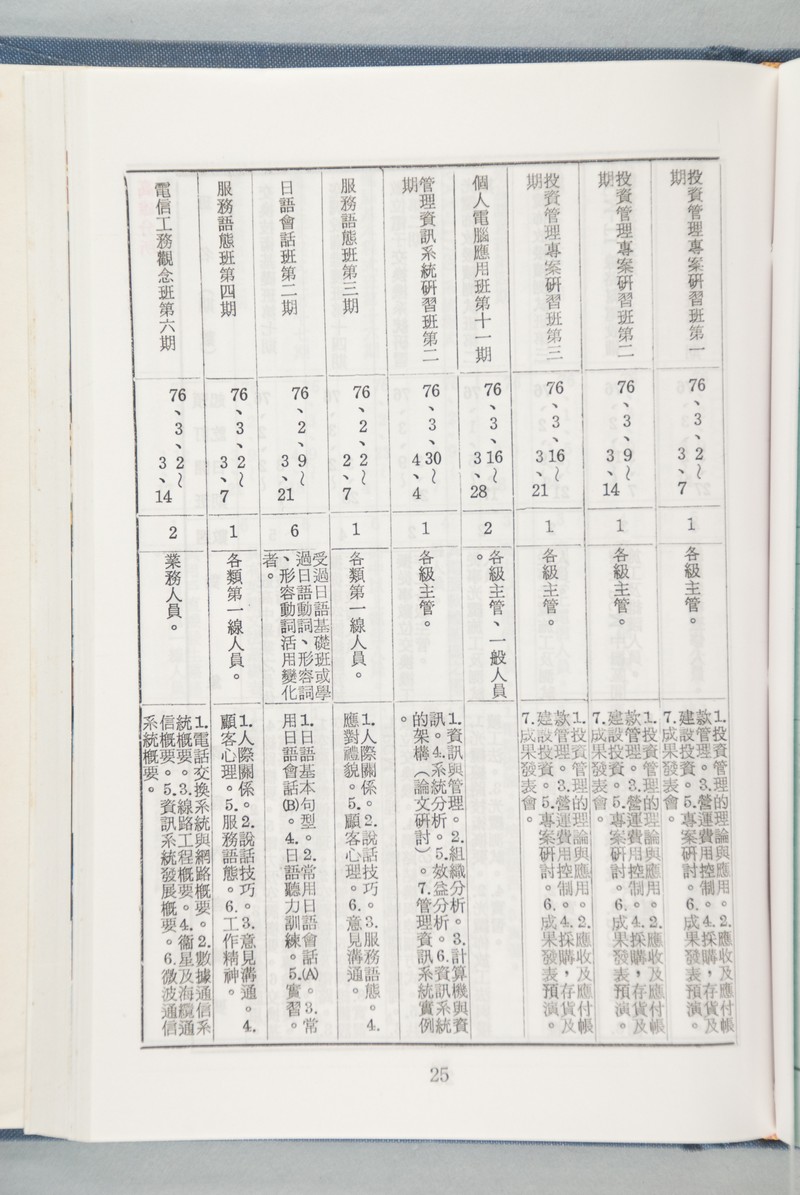 投資管理專案研習班第一
期
76、3、2～
3、7
1
各級主管。
1.投資管理的理論與應用。2.應收及應付帳
款管理。3.營運費用控制。4.採購，存貨及
建設投資。5.專案研討。6.成果發表預演。
7.成果發表會。
投資管理專案研習班第二
期
76、3、9～
3、14
1
各級主管。
1.投資管理的理論與應用。2.應收及應付帳
款管理。3.營運費用控制。4.採購，存貨及
建設投資。5.專案研討。6.成果發表預演。
7.成果發表會。
投資管理專案研習班第三
期
76、3、16
3、21
1
各級主管。
1.投資管理的理論與應用。2.應收及應付帳
款管理。3.營運費用控制。4.採購，存貨及
建設投資。5.專案研討。6.成果發表預演。
7.成果發表會。
個人電腦應用班第十一期
76、3、16～
3、28
2
各級主管、一般人員
。
管理資訊系統研習班第二
期
76、3、30～
4、4
1
各級主管。
1.資訊與管理。2.組織分析。3.計算機與資
訊。4.系統分析。5.效益分析。6.資訊系統
的架構（論文研討）。7.管理資訊系統實例
。
服務語態班第三期
76、2、2～
2、7
1
各類第一線人員。
1.人際關係。2.說話技巧。3.服務語態。4.
應對禮貌。5.顧客心理。6.意見溝通。
日語會話班第二期
76、2、9～
3、21
6
受過日語基礎班或學
過日語動詞、形容詞
、形容動詞活用變化
者。
1.日語基本句型。2.常用日語會話(A)。3.常
用日語會話(B)。4.日語聽力訓練。5.實習。
服務語態班第四期
76、3、2～
3、7
1
各類第一線人員。
1.人際關係。2.說話技巧。3.意見溝通。4.
顧客心理。5.服務語態。6.工作精神。
電信工務觀念班第六期
76、3、2～
3、14
2
業務人員。
1.電話交換系統與網路概要。2.數據通信系
統概要。3.線路工程概要。4.衞星及海纜通
信概要。5.資訊系統發展概要。6.微波通信
系統概要。
25